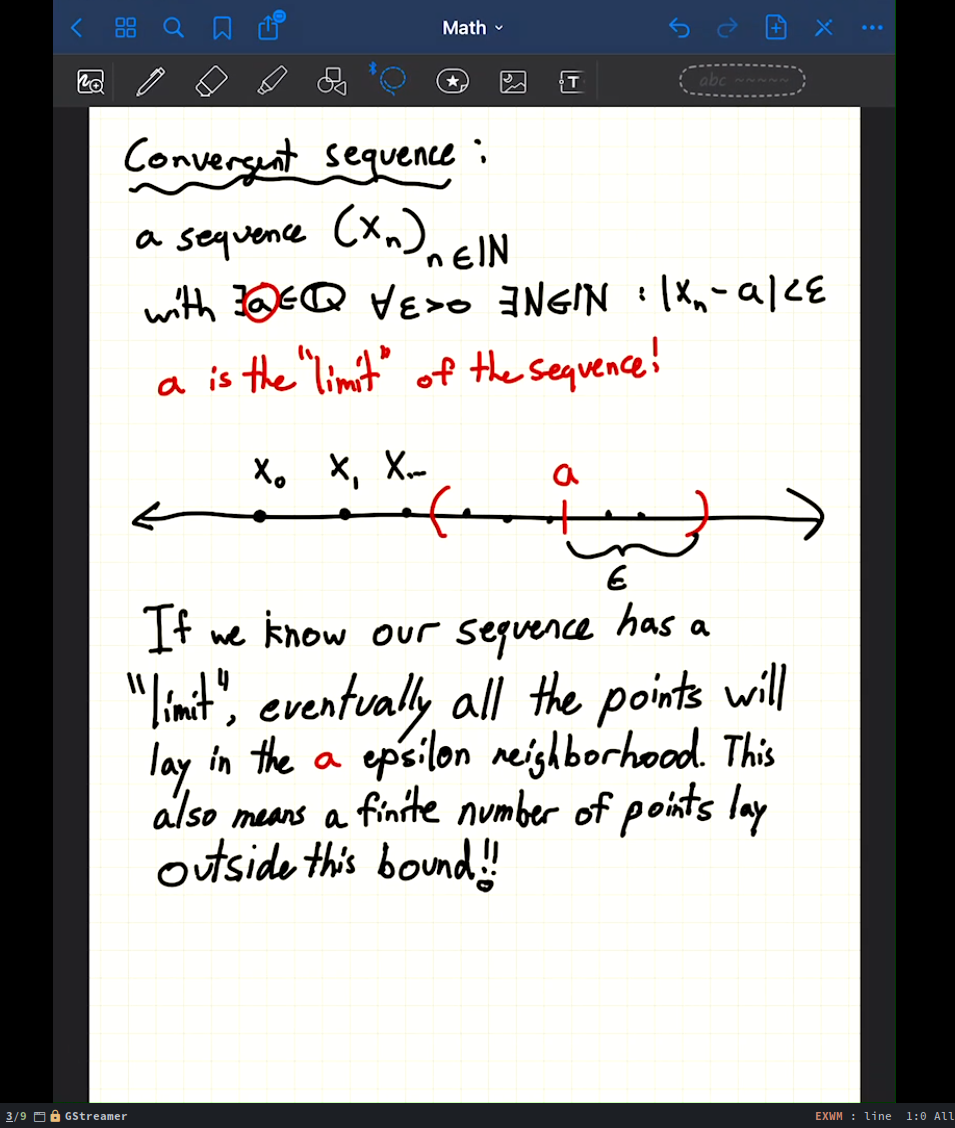 Math
abc ~~~~~
T
Convergent sequence :
a sequence (Xₙ)ₙ∈ℕ
with ∃a∈ℚ ∀ε>0 ∃N∈ℕ : |Xₙ-a|<ε
a is the "limit" of the sequence!
X₀ X₁ X... a
ϵ
If we know our sequence has a
"limit", eventually all the points will
lay in the a epsilon neighborhood. This
also means a finite number of points lay
outside this bound!!
3/9 GStreamer EXWM : line 1:0 All